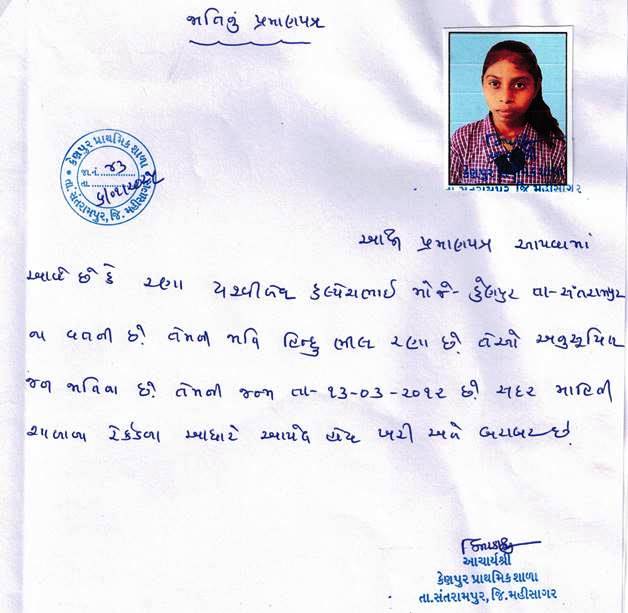 જાતિનું પ્રમાણપત્ર
કેણપુર પ્રાથમિક શાળા
જા.નં. ૪૩
તા.
તા. સંતરામપુર, જિ. મહીસાગર
આથી પ્રમાણપત્ર આપવામાં
આવે છે કે રણા કલ્પેશભાઈ મોજે- કેણપુર તા-સંતરામપુર
ના વતની છે. તેમની જાતિ હિન્દુ ભીલ રણા છે. તેઓ અનુસુચિત
જન જાતિના છે. તેમની જન્મ તા- ૧૩-૦૩-૨૦૧૨ છે. સદર માહિતી
શાળાના રેકર્ડના આધારે આપેલ હોય ખરી અને બરાબર છે.
આચાર્યશ્રી
કેણપુર પ્રાથમિક શાળા
તા.સંતરામપુર, જિ.મહીસાગર